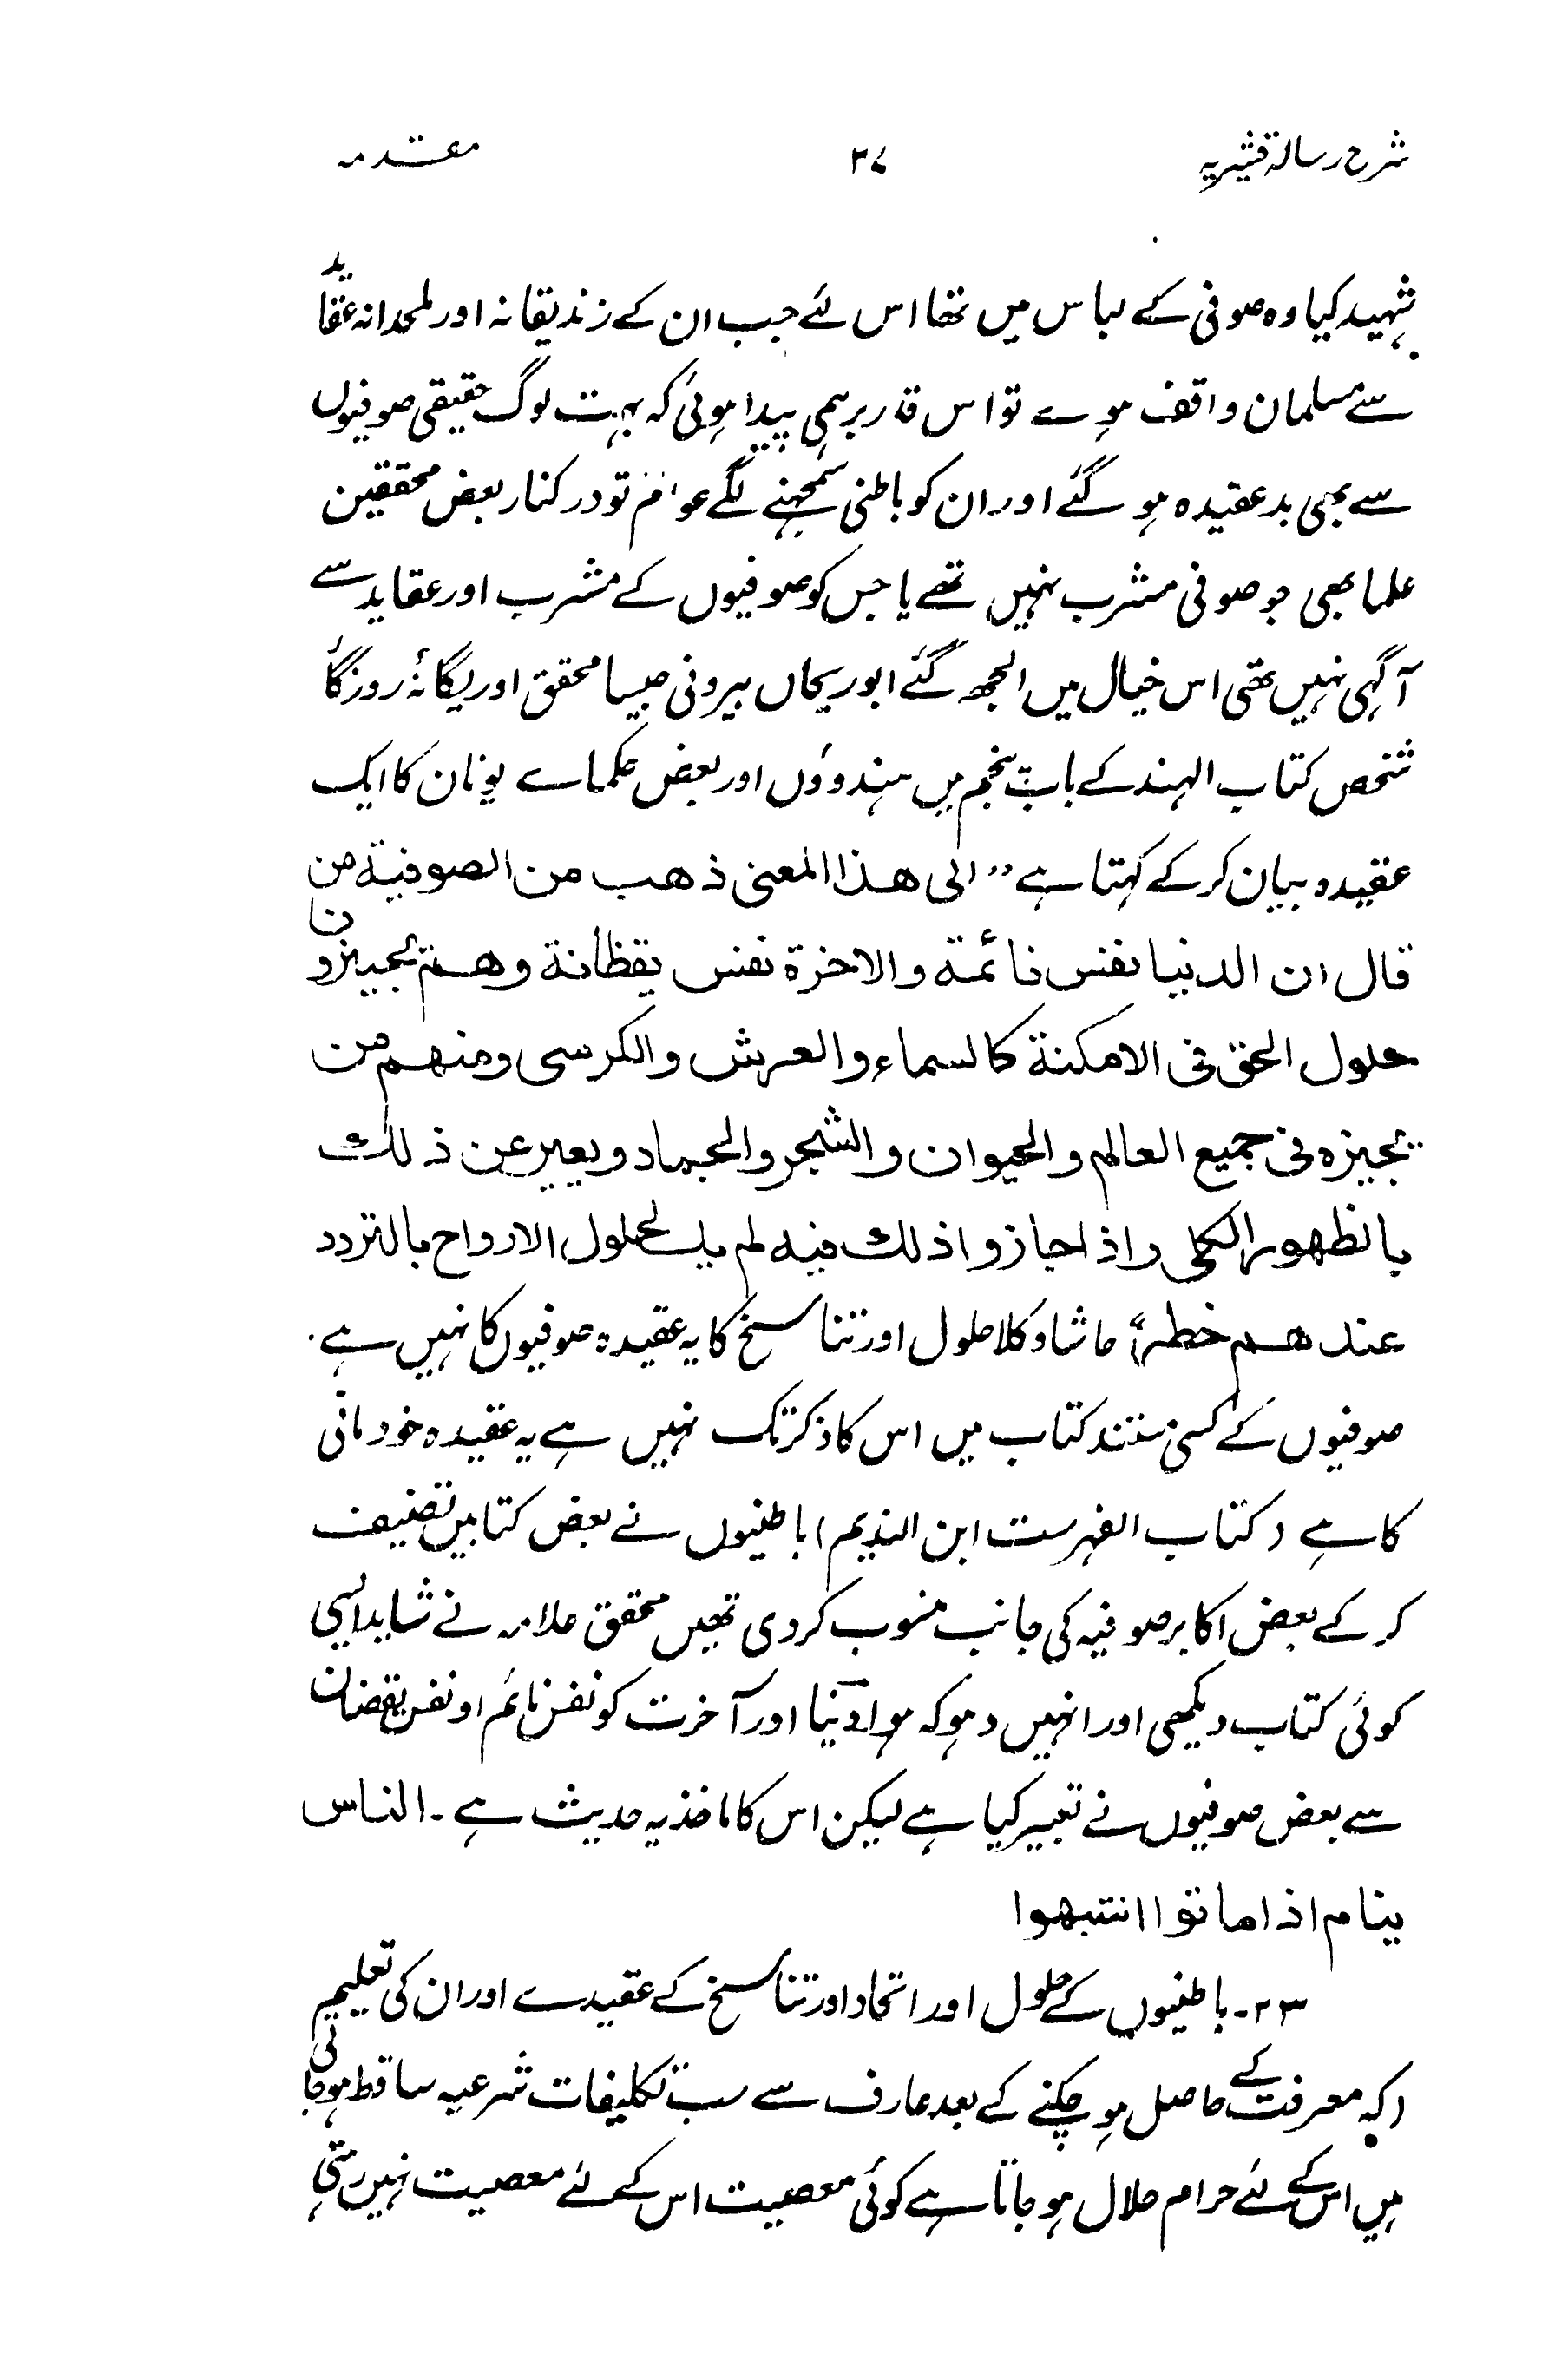 شرح رسالۂ قشیریہ ۳۷ مقدمہ
شہید کیا وہ صوفی کے لباس میں تھا اس لئے جب ان کے زندیقانہ اور ملحدانہ عقاید
سے مسلمان واقف ہوے تو اس قدر برہمی پیدا ہوئی کہ بہت لوگ حقیقی صوفیوں
سے بھی بد عقیدہ ہو گئے اور ان کو باطنی سمجھنے لگے عوام تو درکنار بعض محققین
علما بھی جو صوفی مشرب نہیں تھے یا جس کو صوفیوں کے مشرب اور عقاید سے
آگہی نہیں تھی اس خیال میں الجھ گئے ابوریحاں بیرونی جیسا محقق اور یگانۂ روزگار
شخص کتاب الہند کے باب پنجم میں ہندوؤں اور بعض حکماے یونان کا ایک
عقیدہ بیان کرکے کہتا ہے "الی هذا المعنی ذهب من الصوفیة من
قال ان الدنیا نفس نائمة والاخرة نفس یقظانة وهم یجیزون
حلول الحق فی الامکنة کالسماء والعرش والکرسی ومنهم من
یجیزہ فی جمیع العالم والحیوان والشجر والجماد ویعبر عن ذلك
بالظهور الکلی واذا جازوا ذلك فیه لم یك لحلول الارواح بالتردد
عندهم خطر" حاشا وکلا حلول اور تناسخ کا یہ عقیدہ صوفیوں کا نہیں ہے۔
صوفیوں کے کسی مستند کتاب میں اس کا ذکر تک نہیں ہے یہ عقیدہ خود مانی
کا ہے (کتاب الفہرست ابن الندیم) باطنیوں نے بعض کتابیں تصنیف
کرکے بعض اکابر صوفیہ کی جانب منسوب کردی تھیں محقق علامہ نے شاید ایسی
کوئی کتاب دیکھی اور انہیں دہوکہ ہوا دنیا اور آخرت کو نفس نائم او نفس یقضان
سے بعض صوفیوں نے تعبیر کیا ہے لیکن اس کا ماخذ یہ حدیث ہے۔ الناس
ینام اذا ماتوا انتبهوا
۲۳۔ باطنیوں کے حلول اور اتحاد اور تناسخ کے عقیدے اور ان کی تعلیم
(کہ معرفت کے حاصل ہو چکنے کے بعد عارف سے سب تکلیفات شرعیہ ساقط ہوجاتی
ہیں اس کے لئے حرام حلال ہو جاتا ہے کوئی معصیت اس کے لئے معصیت نہیں رہتی